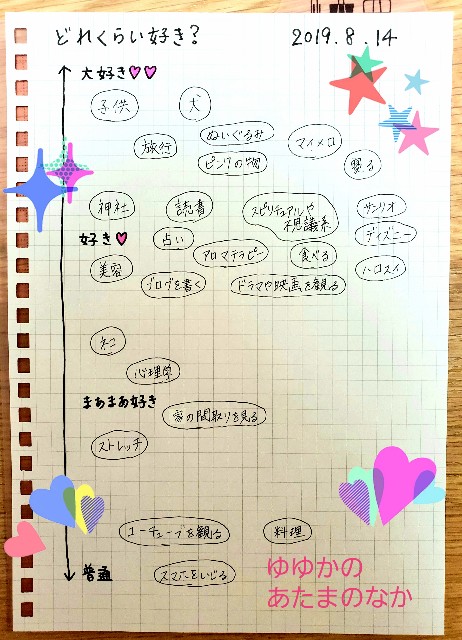 どれくらい好き? 2019.8.14
大好き
子供 犬
ぬいぐるみ
旅行 マイメロ
ピンクの物
寝る
神社 読書 スピリチュアルや サンリオ
不思議系
好き 占い ディズニー
アロマテラピー 食べる
美容 ハロスイ
ブログを書く ドラマや映画を観る
ネコ
心理学
まぁまぁ好き
家の間取りを見る
ストレッチ
ユーチューブを観る 料理
普通 スマホをいじる
ゆゆかの
あたまのなか